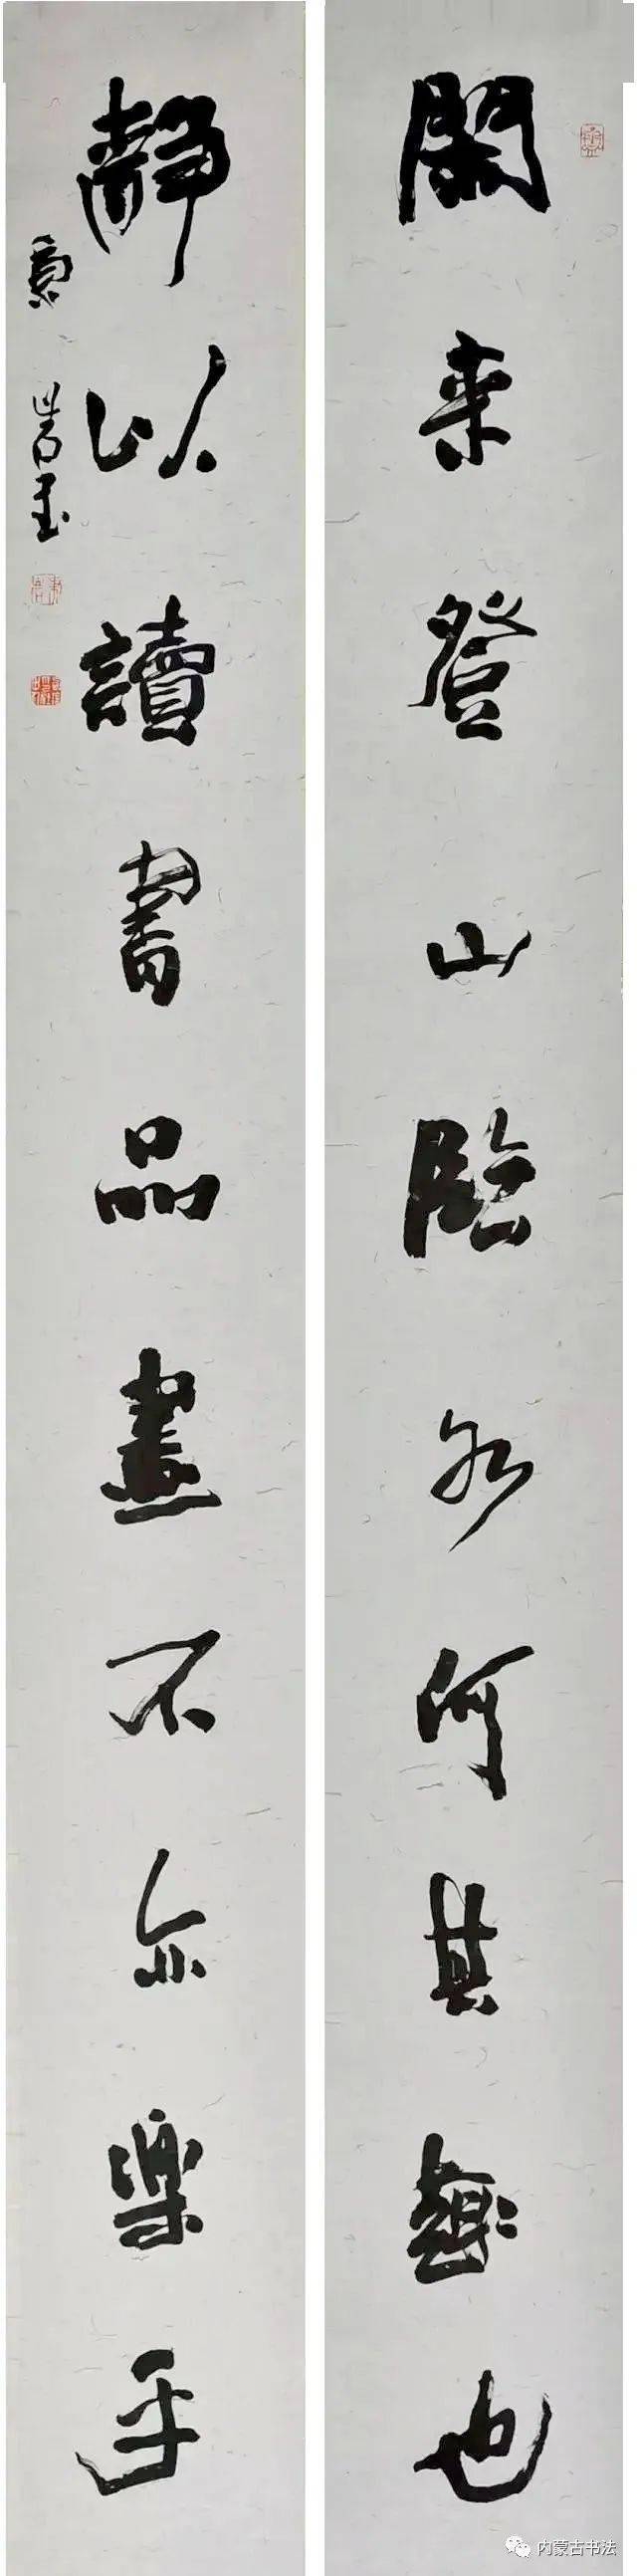 閑来登山臨水何其趣也
靜以讀書品畫不亦樂乎
内蒙古书法